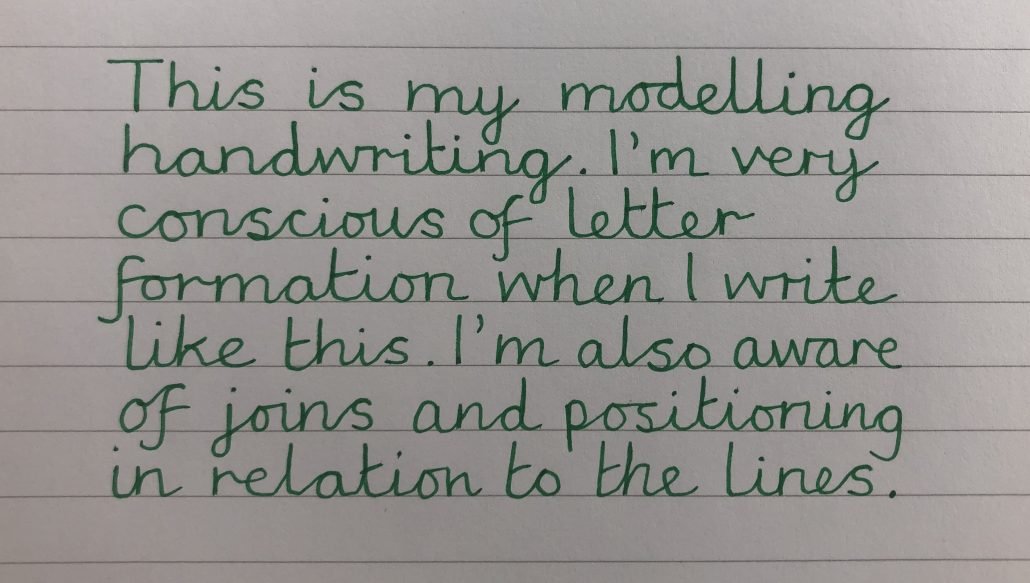 This is my modelling
handwriting. I'm very
conscious of letter
formation when I write
like this. I'm also aware
of joins and positioning
in relation to the lines.